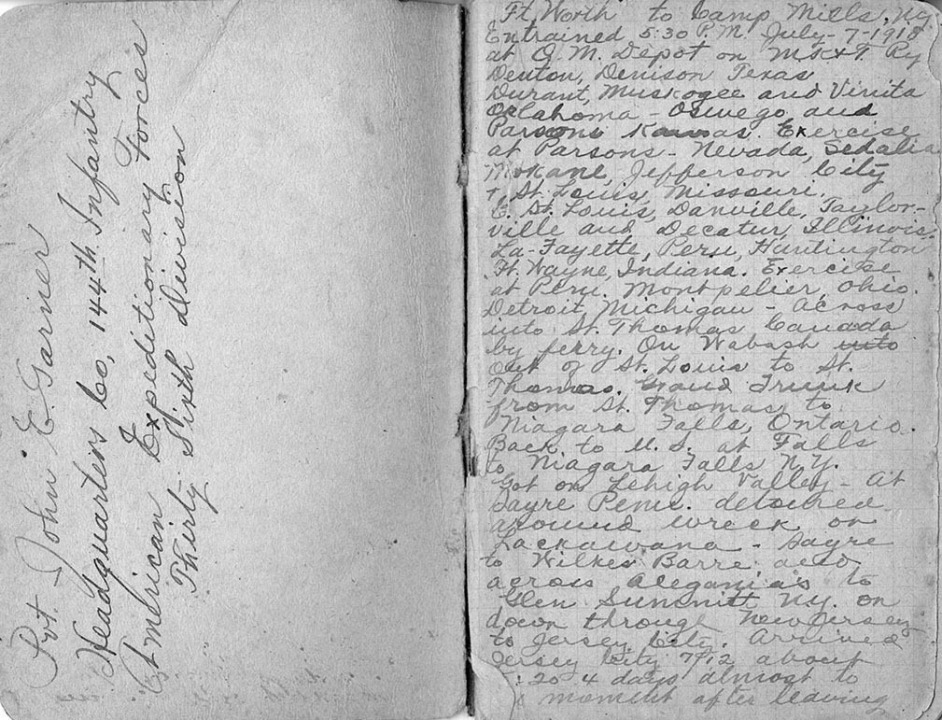 Pvt. John E. Garner
Headquarters Co, 144th Infantry
American Expeditionary Forces
Thirty-Sixth Division
Ft. Worth to Camp Mills, N.Y.
Entrained 5:30 P.M. July-7-1918
at Q.M. Depot on MK&T. Ry
Denton, Denison Texas
Durant, Muskogee and Vinita
Oklahoma - Oswego and
Parsons Kansas. Exercise
at Parsons - Nevada, Sedalia
Mokane, Jefferson City
St. Louis, Missouri.
E. St. Louis, Danville, Taylor-
ville and Decatur, Illinois.
La-Fayette, Peru, Huntington
Ft. Wayne, Indiana. Exercise
at Peru. Montpelier, Ohio.
Detroit, Michigan - Across
into St. Thomas Canada
by ferry. On Wabash into
out of St. Louis to St.
Thomas. Grand Trunk
from St. Thomas to
Niagara Falls, Ontario.
Back to U.S. at Falls
to Niagara Falls N.Y.
Got on Lehigh Valley - At
Sayre Penn. detoured
around wreck on
Lackawana - Sayre
to Wilkes Barre
across Aleganias to
Glen Summitt N.Y. on
down through New Jersey
to Jersey City. Arrived
Jersey City 7/12 about
:20 4 days almost to
moment after leaving